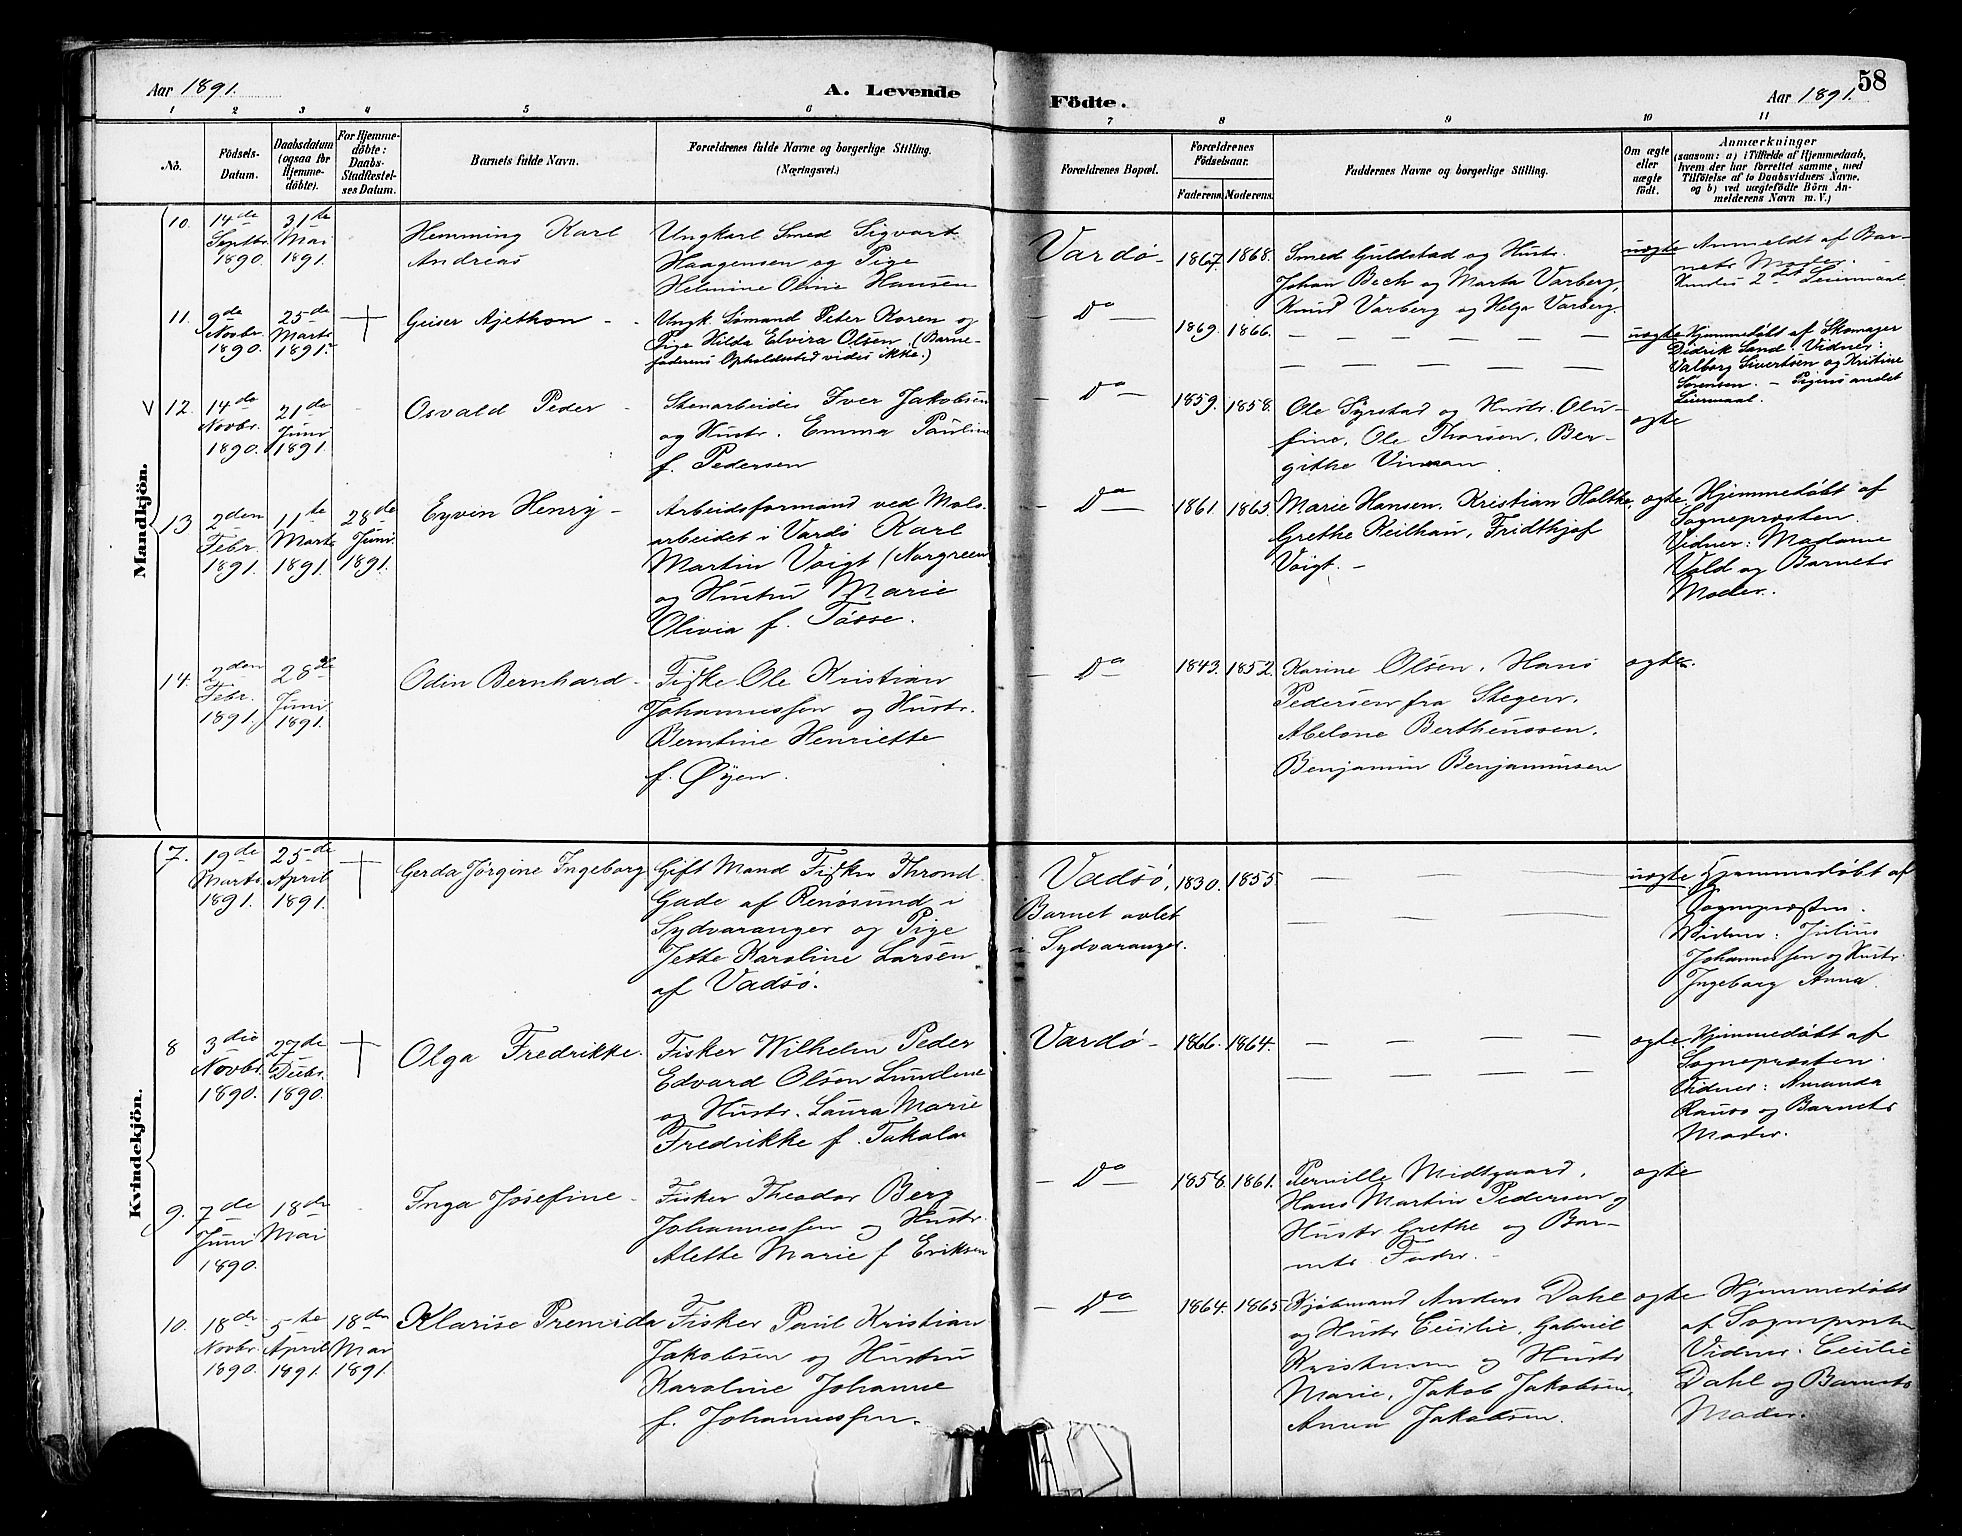 Aar 1891.
A. Levende Fødte.
Aar 1891. 58
1 2 3 4 5 6 7 8 9 10 11
No.
Födsels-Datum.
Daabsdatum (ogsaa for Hjemmedöbte).
For Hjemmedöbte: Daabs-Stadfæstelses Datum.
Barnets fulde Navn.
Forældrenes fulde Navne og borgerlige Stilling. (Næringsvei.)
Forældrenes Bopæl.
Forældrenes Födselsaar.
Faderens. Moderens.
Faddernes Navne og borgerlige Stilling.
Om ægte eller uægte födt.
Anmærkninger
(saasom: a) i Tilfælde af Hjemmedaab, hvem der har forrettet samme, med Tilföielse af to Daabsvidners Navne, og b) ved uægtefödte Börn Anmelderens Navn m. V.)
Mandkjön.
10. 14de Septbr. 1890. 31te Mai 1891.
Hemming Karl
Andreas
Ungkarl Smed Sigvart
Haagensen og Pige
Helmine Oline Hansen
Vardø - 1867. 1868.
Smed Guldstad og Hustr.
Johan Bech og Marta Varberg,
Knud Varberg og Helga Varberg.
uægte
Anmeldt af Bar-
nets Moder.
Kundes 2det Leiermaal.
11. 9de Novbr. 1890. 25de Marts 1891. †
Geiser Ajethon -
Ungk. Sømand Peter Koren og
Pige Hilda Elvira Olsen (Barne-
faderens Opholdssted vides ikke.)
- Do - 1869. 1866.
uægte
Hjemmedøbt af Skomager
Didrik Sand. Vidner:
Valborg Sivertsen og Kristine
Sørensen. - Pigens andet
Leiermaal.
V 12. 14de Novbr. 1890. 21de Juni 1891.
Osvald Peder -
Stenarbeider Iver Jakobsen
og Hustr. Emma Pauline
f. Pedersen
- Do - 1859. 1858.
Ole Syrstad og Hustr. Olu-
fine, Ole Thorsen, Ber-
githe Vinsan
ægte
13 2den Febr. 1891. 11te Marts 1891. 28de Juni 1891.
Eyvin Henry -
Arbeidsformand ved Molo-
arbeidet i Vardø Karl
Martin Voigt (Norgreen)
og Hustru Marie
Olivia f. Tøsse.
- Do - 1861. 1865.
Marie Hansen, Kristian Holtke,
Grethe Keilhau, Fridthjof
Voigt. -
ægte
Hjemmedøbt af
Sognepræsten.
Vidner: Madame
Vold og Barnets
Moder.
14. 2den Febr. 1891. 28de Juni 1891.
Odin Bernhard -
Fisker Ole Kristian
Johannessen og Hustr.
Berntine Henriette
f. Øyen.
- Do - 1843. 1852.
Karine Olsen, Hans
Pedersen fra Stegen,
Abelone Bertheussen,
Benjamin Benjaminsen
ægte
Kvindekjön.
7. 19de Marts 1891. 25de April 1891. †
Gerda Jørgine Ingeborg
Gift Mand Fisker Thrond
Gade af Renøsund i
Sydvaranger og Pige
Jette Karoline Larsen
af Vadsø.
Vadsø,
Barnet avlet
i Sydvaranger.
1830. 1855.
uægte
Hjemmedøbt af
Sognepræsten.
Vidner: Julius
Johannessen og Hustr.
Ingeborg Anna
8 3die Novbr. 1890. 27de Decbr. 1890. †
Olga Fredrikke.
Fisker Wilhelm Peder
Edvard Olsen Lundene
og Hustr. Laura Marie
Fredrikke f. Takala
Vardø - 1866. 1864.
ægte.
Hjemmedøbt af
Sognepræsten.
Vidner: Amanda
Rauso og Barnets
Moder.
9. 7de Juni 1890. 18de Mai
Inga Josefine -
Fisker Theodor Berg
Johannessen og Hustr.
Alette Marie f. Eriksen
- Do - 1858. 1861.
Pernille Midtgaard,
Hans Martin Pedersen og
Hustr Grethe og Bar-
nets Fader. -
ægte
10. 18de Novbr. 1890. 5te April 1891. 18de Mai 1891.
Klarise Premida
Fisker Paul Kristian
Jakobsen og Hustru
Karoline Johanne
f. Johannessen.
- Do - 1864. 1865
Kjøbmand Anders Dahl
og Hustr Cecilie, Gabriel
Kristensen og Hustr
Marie, Jakob Jakobsen,
Anna Jakobsen.
ægte
Hjemmedøbt
af Sognepræsten
Vidner: Cecilie
Dahl og Barnets
Moder.